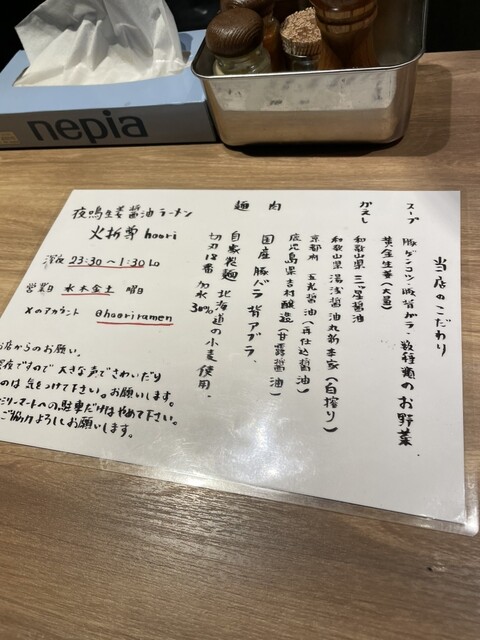 nepia
当店のこだわり
スープ 豚ゲンコツ・豚背ガラ・数種類のお野菜
黄金生姜(大量)
かえし 和歌山県 三ツ星醤油
和歌山県 湯浅醤油 丸新本家(自搾り)
京都府 五光醤油(再仕込醤油)
鹿児島県 吉村醸造(甘露醤油)
肉 国産豚バラ 背アブラ.
麺 自家製麺 北海道の小麦使用.
切刃18番 加水30%
夜鳴生姜醤油ラーメン
火折尊 hoori
深夜 23:30〜1:30 Lo
営業日 水木金土 曜日
Xのアカウント @hooriramen
お店からのお願い.
深夜ですので 大きな声でさわいだり
のは 気をつけて下さい。お願いします。
ミリーマートへの駐車だけはやめて下さい。
ご協力よろしくお願いします。